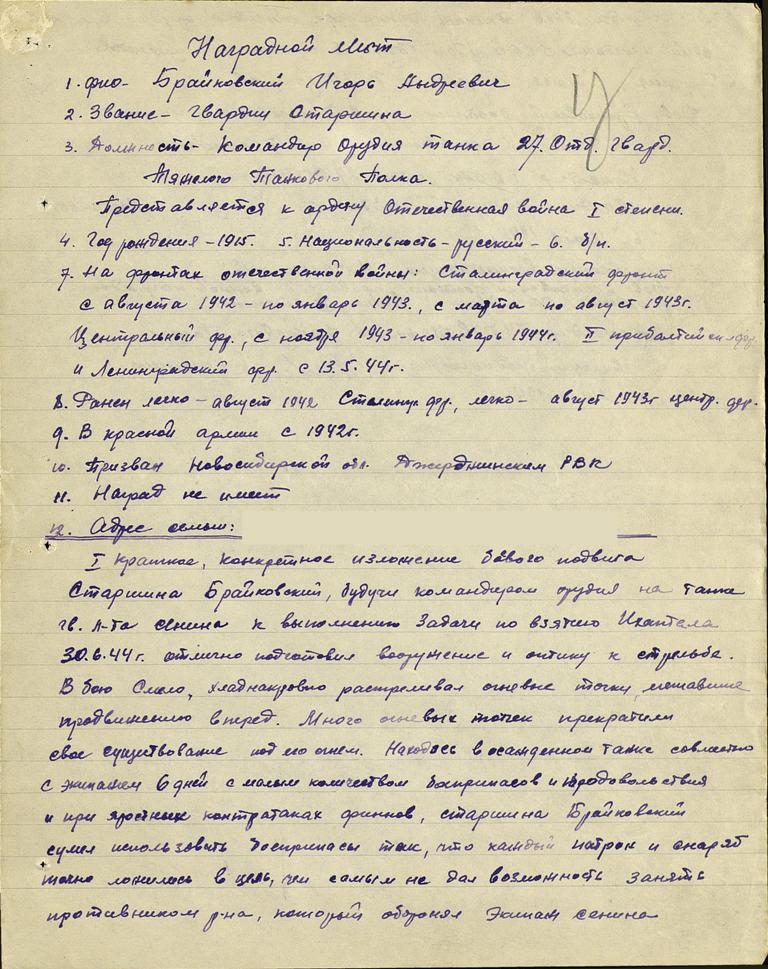 Наградной лист
1. фио- Брайковский Игорь Андреевич
2. Звание- Гвардии Старшина
3. Должность- Командир орудия танка 27. Отд. Гвард.
Тяжелого Танкового Полка.
Представляется к ордену Отечественная война I степени.
4. Год рождения - 1915. 5. Национальность - русский - 6. б/п.
7. На фронтах отечественной войны: Сталинградский фронт
с августа 1942 - по январь 1943., с марта по август 1943г.
Центральный фр., с ноября 1943 - по январь 1944г. II прибалтийский фр.
и Ленинградский фр. с 13.5.44г.
8. Ранен легко - август 1942 Сталингр. фр., легко - август 1943г центр. фр.
9. В красной армии с 1942г.
10. Призван Новосибирской обл. Дзержинским РВК
11. Наград не имеет
12. Адрес семьи:
I Краткое, конкретное изложение боевого подвига
Старшина Брайковский, будучи командиром орудия на танке
гв. л-та Сенина к выполнению задачи по взятию Ихантала
30.6.44г. отлично подготовил вооружение и оптику к стрельбе.
В бою Смело, хладнокровно расстреливал огневые точки, мешавшие
продвижению вперед. Много огневых точек прекратили
свое существование под его огнем. Находясь в осажденном танке совместно
с экипажем 6 дней с малым количеством боеприпасов и продовольствия
и при яростных контратаках финнов, старшина Брайковский
сумел использовать боеприпасы так, что каждый патрон и снаряд
точно ложилось в цель, чем самым не дал возможность занять
противником р-на, который оборонял Экипаж Сенина